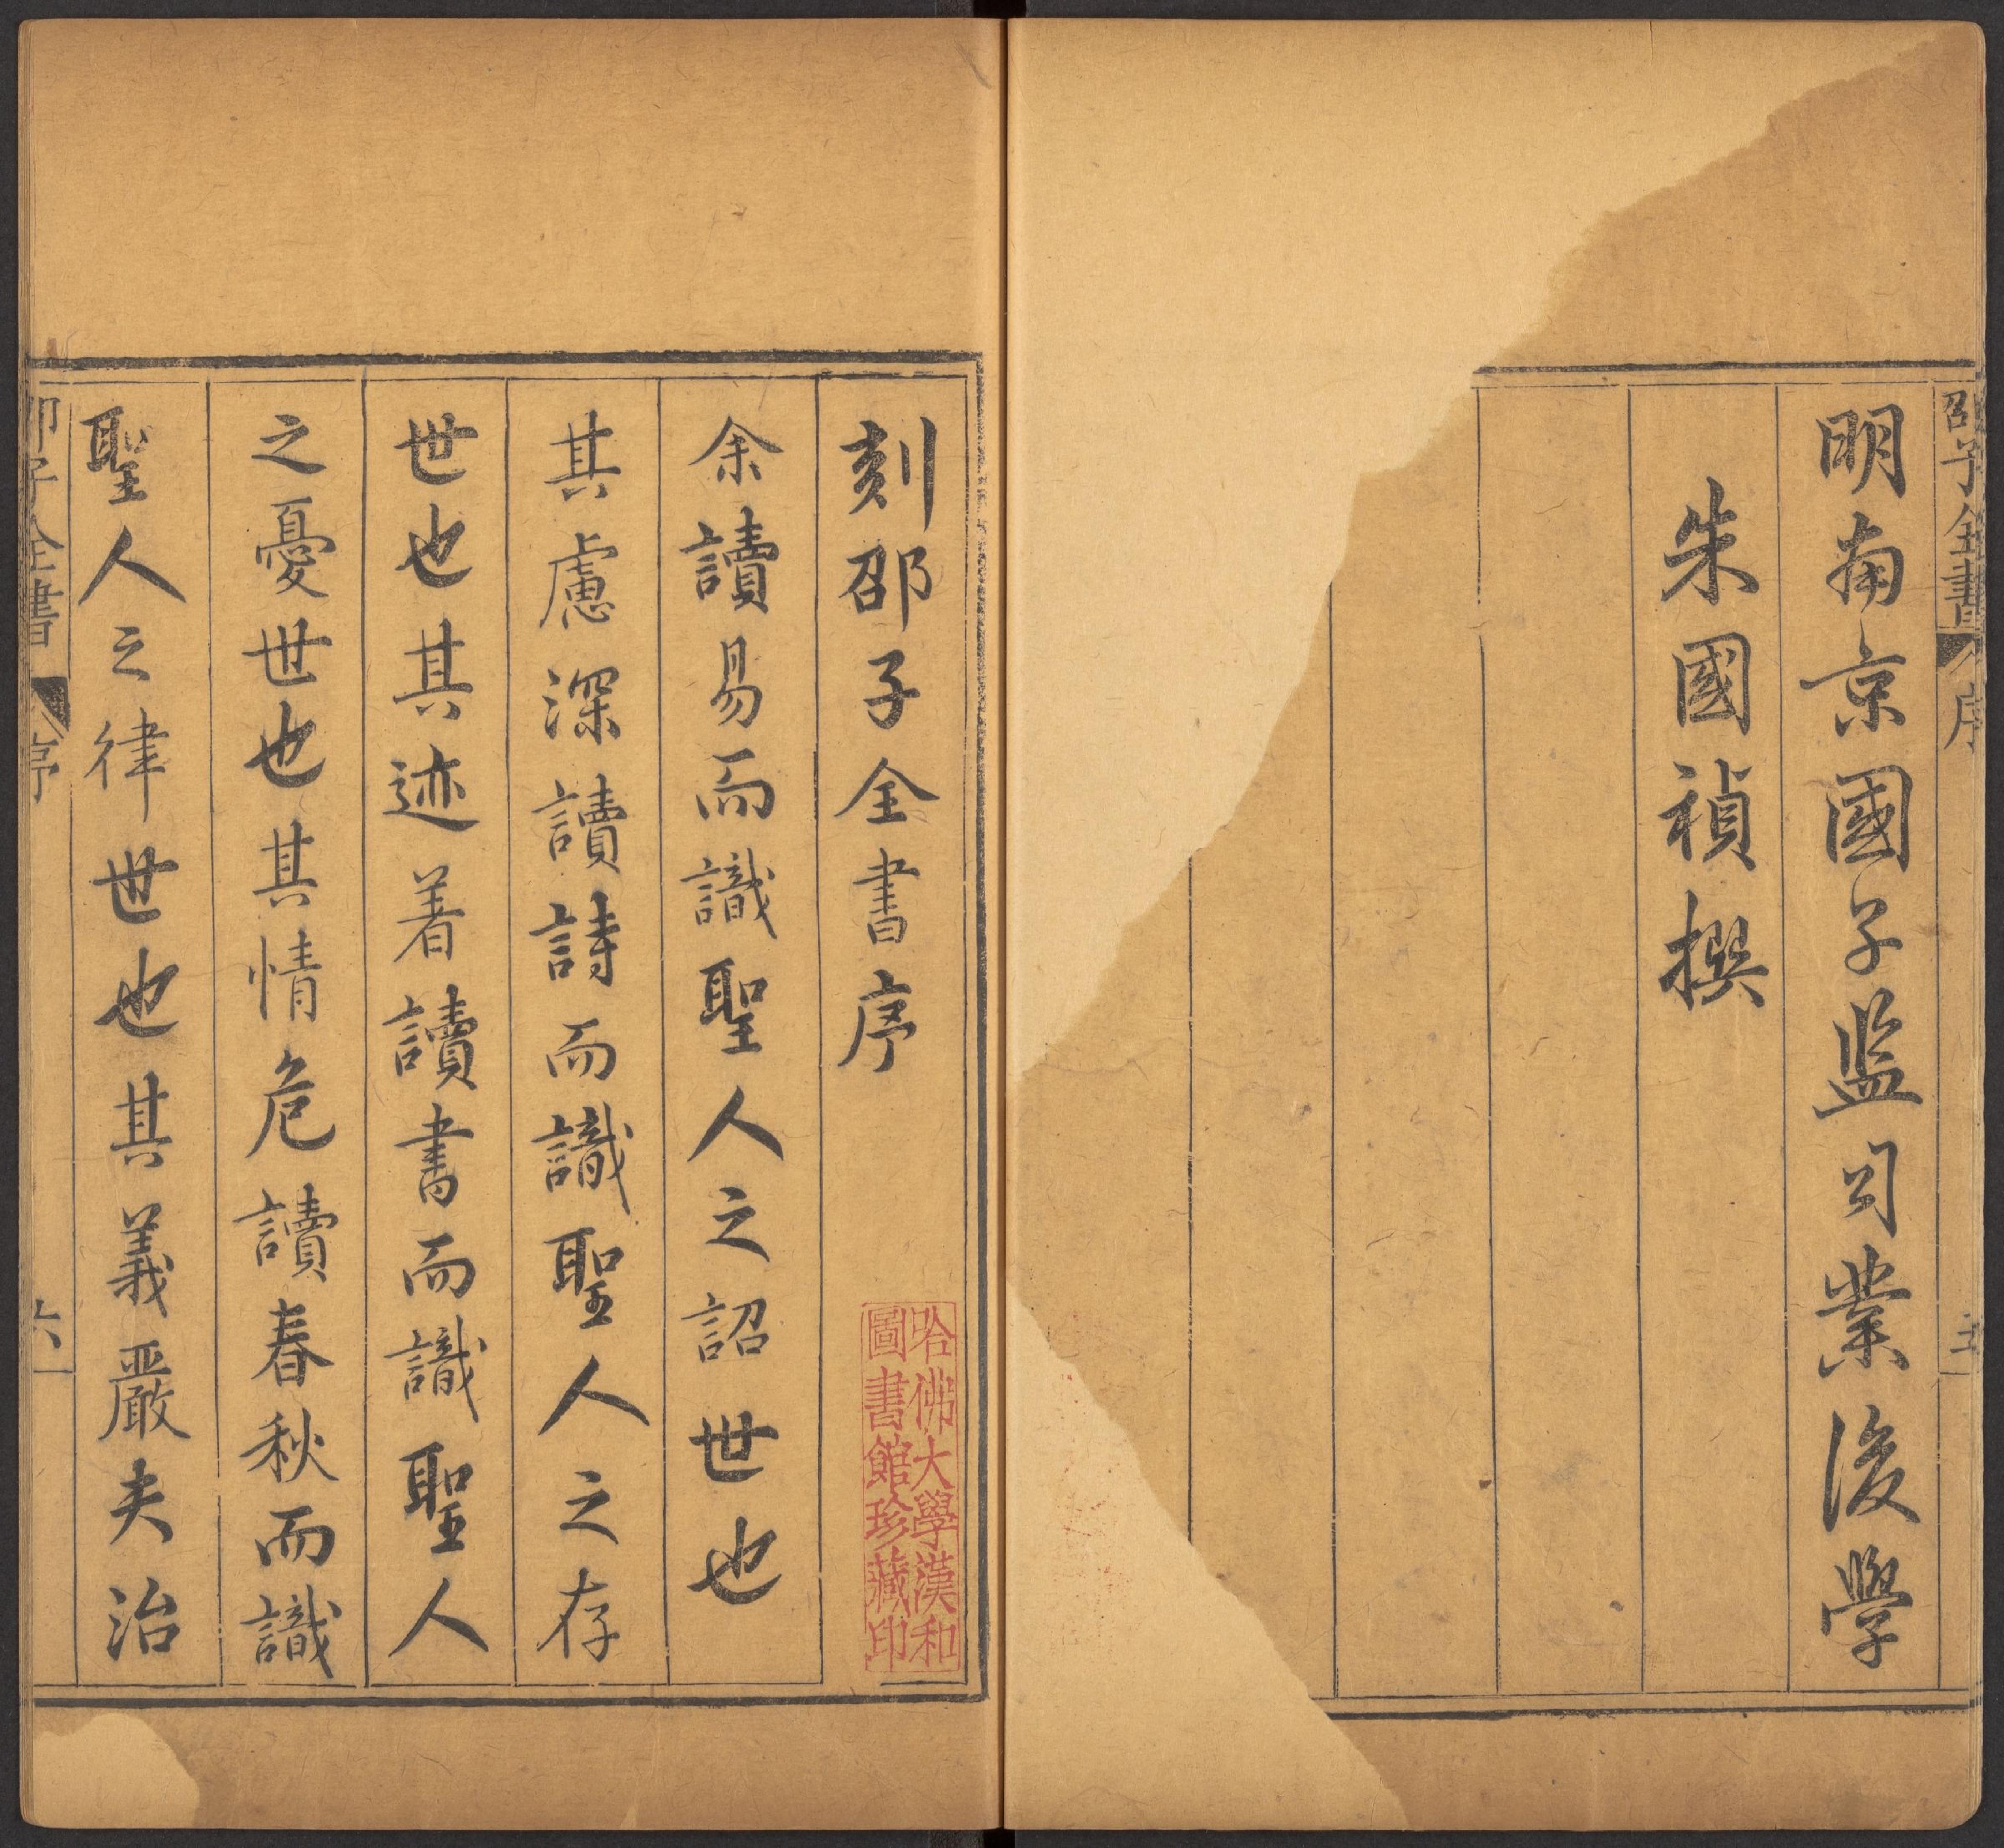 邵子全書
序
五
明南京國子監司業後學
朱國禎撰
刻邵子全書序
哈佛大學漢和
圖書館珍藏印
余讀易而識聖人之詔世也
其慮深讀詩而識聖人之存
世也其迹着讀書而識聖人
之憂世也其情危讀春秋而識
聖人之律世也其義嚴夫治
邵子全書
序
六